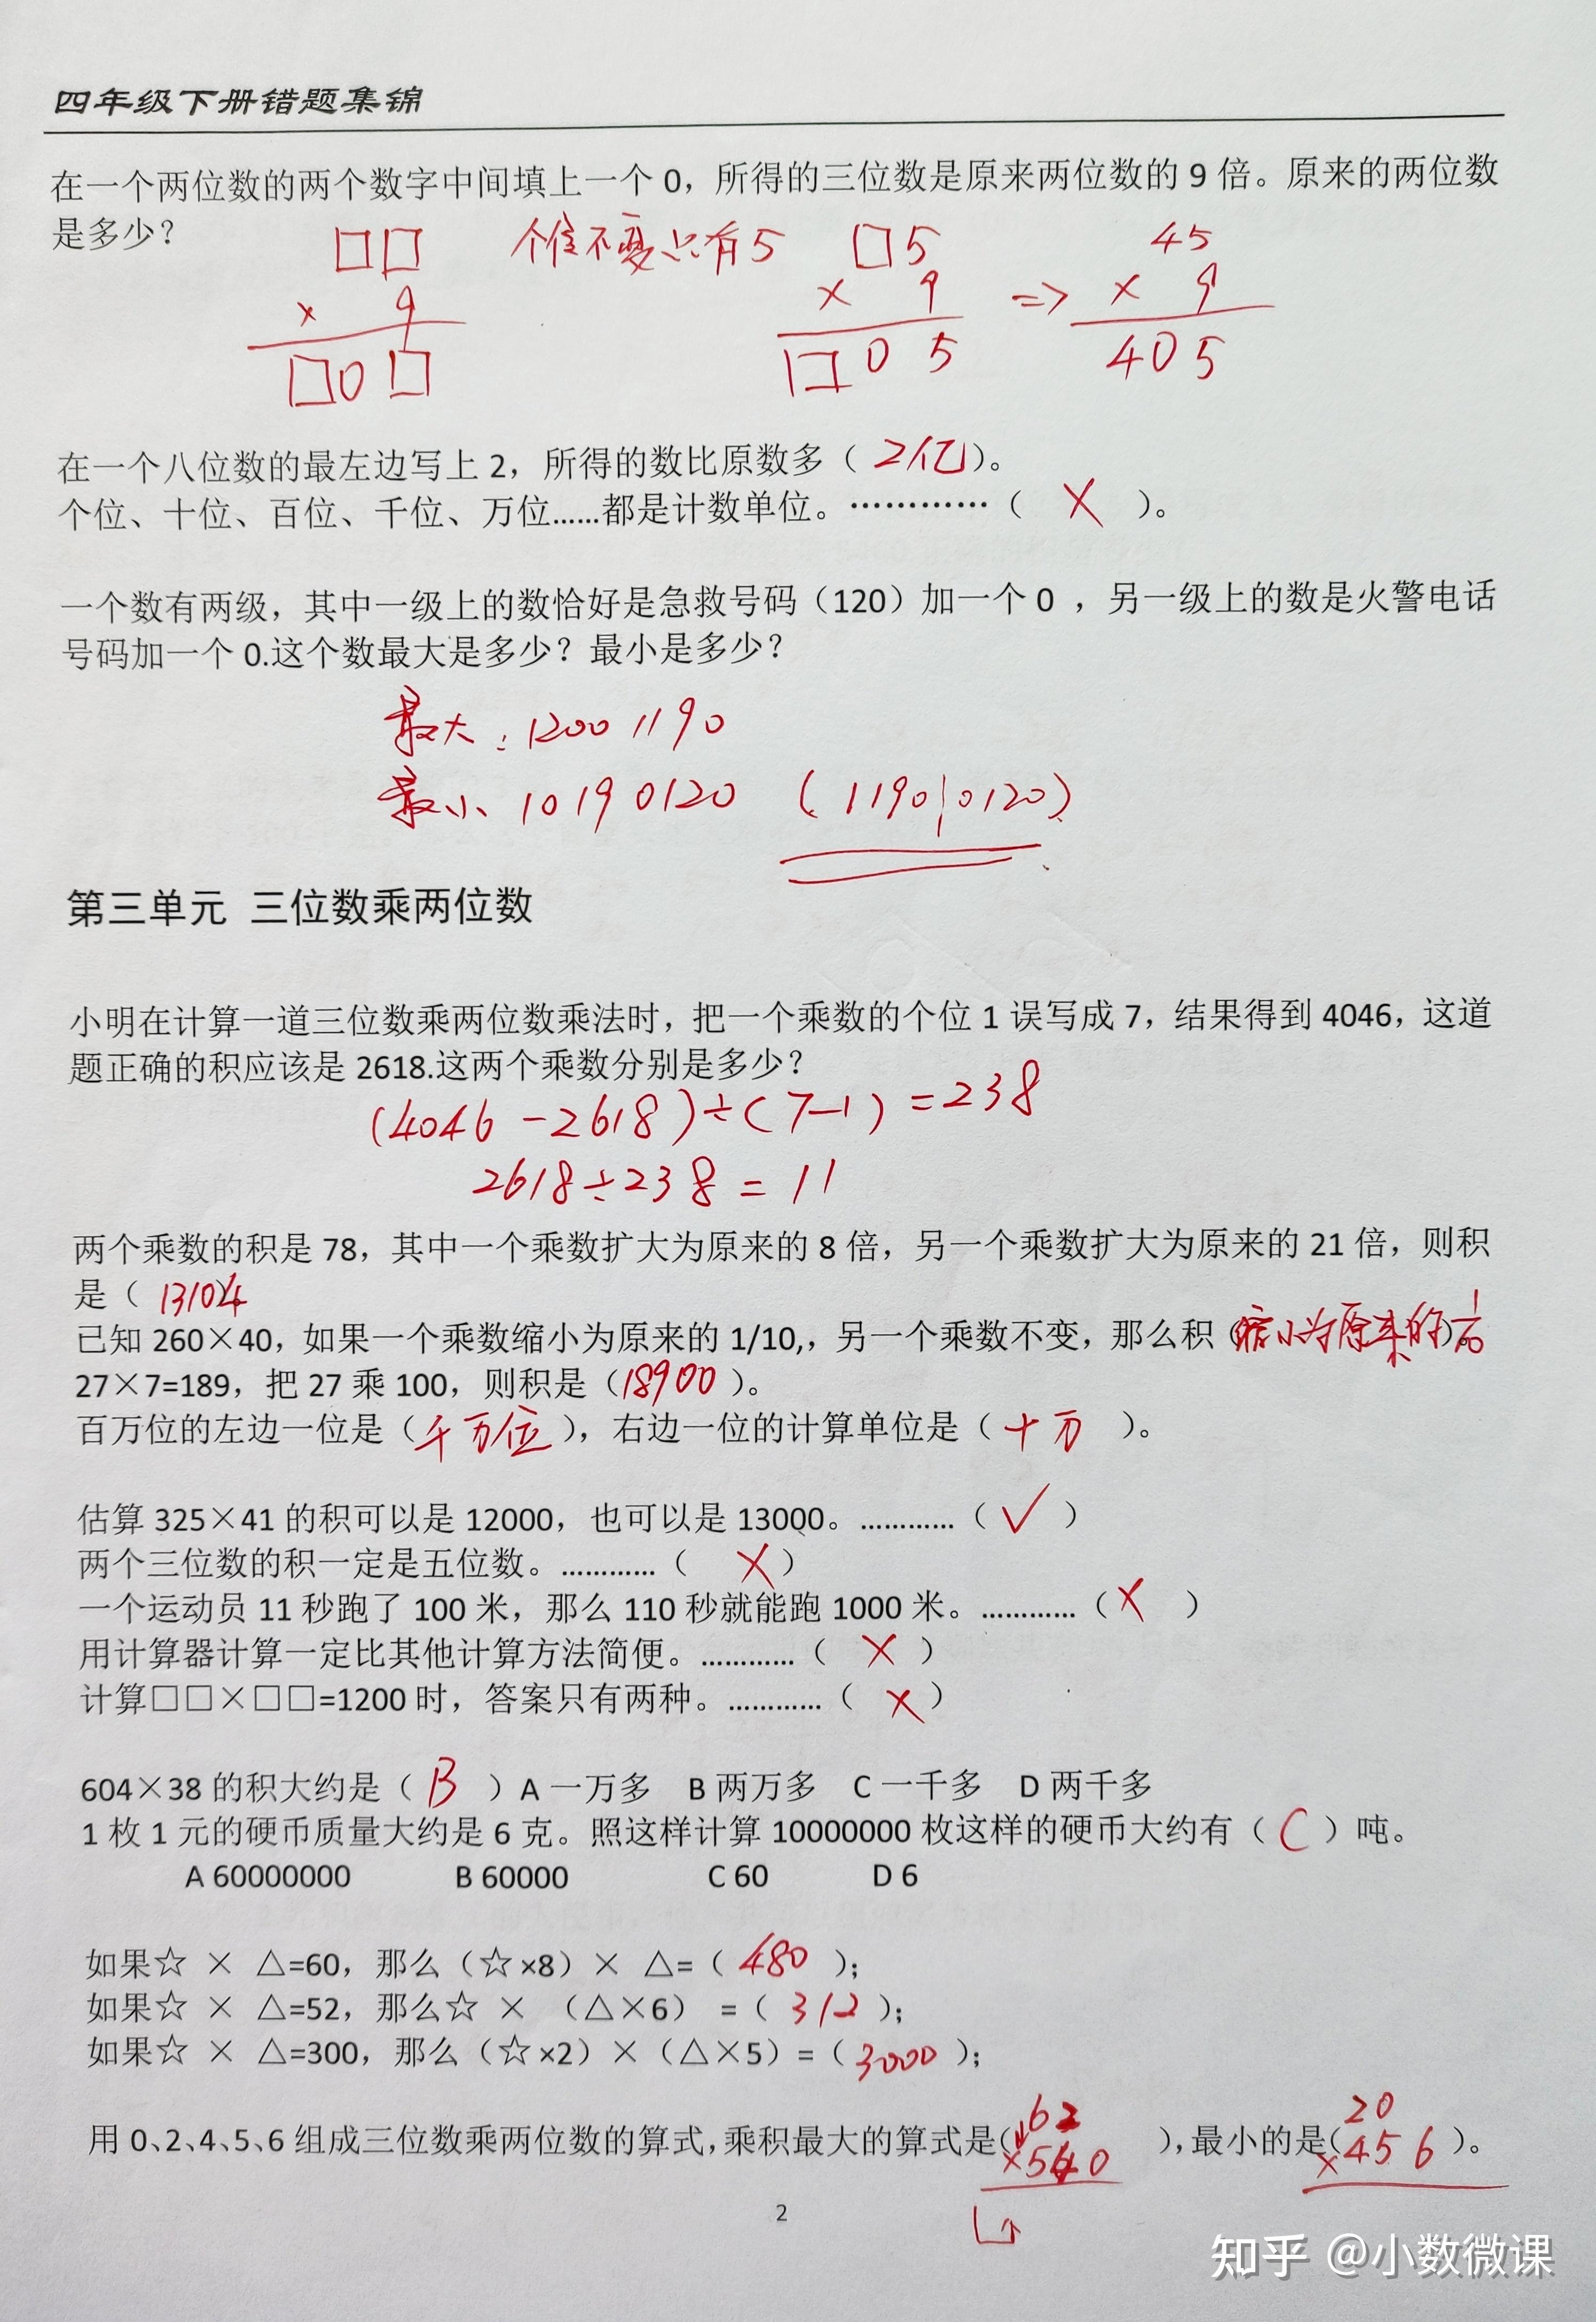 四年级下册错题集锦
在一个两位数的两个数字中间填上一个 0，所得的三位数是原来两位数的 9 倍。原来的两位数
是多少？
□□ 个位不变只有5 □5 45
× 9 × 9 => × 9
□0□ □05 405
在一个八位数的最左边写上 2，所得的数比原数多（ 2亿 ）。
个位、十位、百位、千位、万位……都是计数单位。…………（ × ）。
一个数有两级，其中一级上的数恰好是急救号码（120）加一个 0 ，另一级上的数是火警电话
号码加一个 0.这个数最大是多少？最小是多少？
最大：12001190
最小 10190120 （1190 0120）
第三单元 三位数乘两位数
小明在计算一道三位数乘两位数乘法时，把一个乘数的个位 1 误写成 7，结果得到 4046，这道
题正确的积应该是 2618.这两个乘数分别是多少？
(4046 -2618)÷(7-1) =238
2618÷238 = 11
两个乘数的积是 78，其中一个乘数扩大为原来的 8 倍，另一个乘数扩大为原来的 21 倍，则积
是（ 13104
已知 260×40，如果一个乘数缩小为原来的 1/10,，另一个乘数不变，那么积（缩小为原来的1/10）。
27×7=189，把 27 乘 100，则积是（18900 ）。
百万位的左边一位是（千万位 ），右边一位的计算单位是（ 十万 ）。
估算 325×41 的积可以是 12000，也可以是 13000。…………（ √ ）
两个三位数的积一定是五位数。…………（ × ）
一个运动员 11 秒跑了 100 米，那么 110 秒就能跑 1000 米。…………（ × ）
用计算器计算一定比其他计算方法简便。…………（ × ）
计算□□×□□=1200 时，答案只有两种。…………（ × ）
604×38 的积大约是（ B ）A 一万多 B 两万多 C 一千多 D 两千多
1 枚 1 元的硬币质量大约是 6 克。照这样计算 10000000 枚这样的硬币大约有（ C ）吨。
A 60000000 B 60000 C 60 D 6
如果☆ × △=60，那么（☆×8）× △=（ 480 ）；
如果☆ × △=52，那么☆ × （△×6） =（ 312 ）；
如果☆ × △=300，那么（☆×2）×（△×5）=（ 3000 ）；
62 20
用 0、2、4、5、6 组成三位数乘两位数的算式，乘积最大的算式是（ ×540 ），最小的是（ ×456 ）。
2
知乎 @小数微课